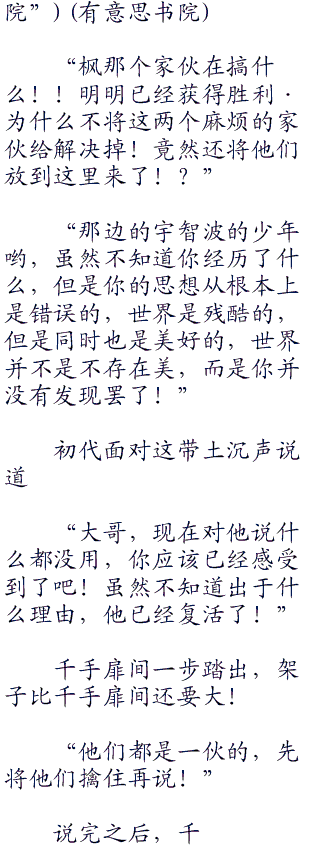 院”) (有意思书院)
“枫那个家伙在搞什
么！！明明已经获得胜利·
为什么不将这两个麻烦的家
伙给解决掉！竟然还将他们
放到这里来了！？”
“那边的宇智波的少年
哟，虽然不知道你经历了什
么，但是你的思想从根本上
是错误的，世界是残酷的，
但是同时也是美好的，世界
并不是不存在美，而是你并
没有发现罢了！”
初代面对这带土沉声说
道
“大哥，现在对他说什
么都没用，你应该已经感受
到了吧！虽然不知道出于什
么理由，他已经复活了！”
千手扉间一步踏出，架
子比千手扉间还要大！
“他们都是一伙的，先
将他们擒住再说！”
说完之后，千